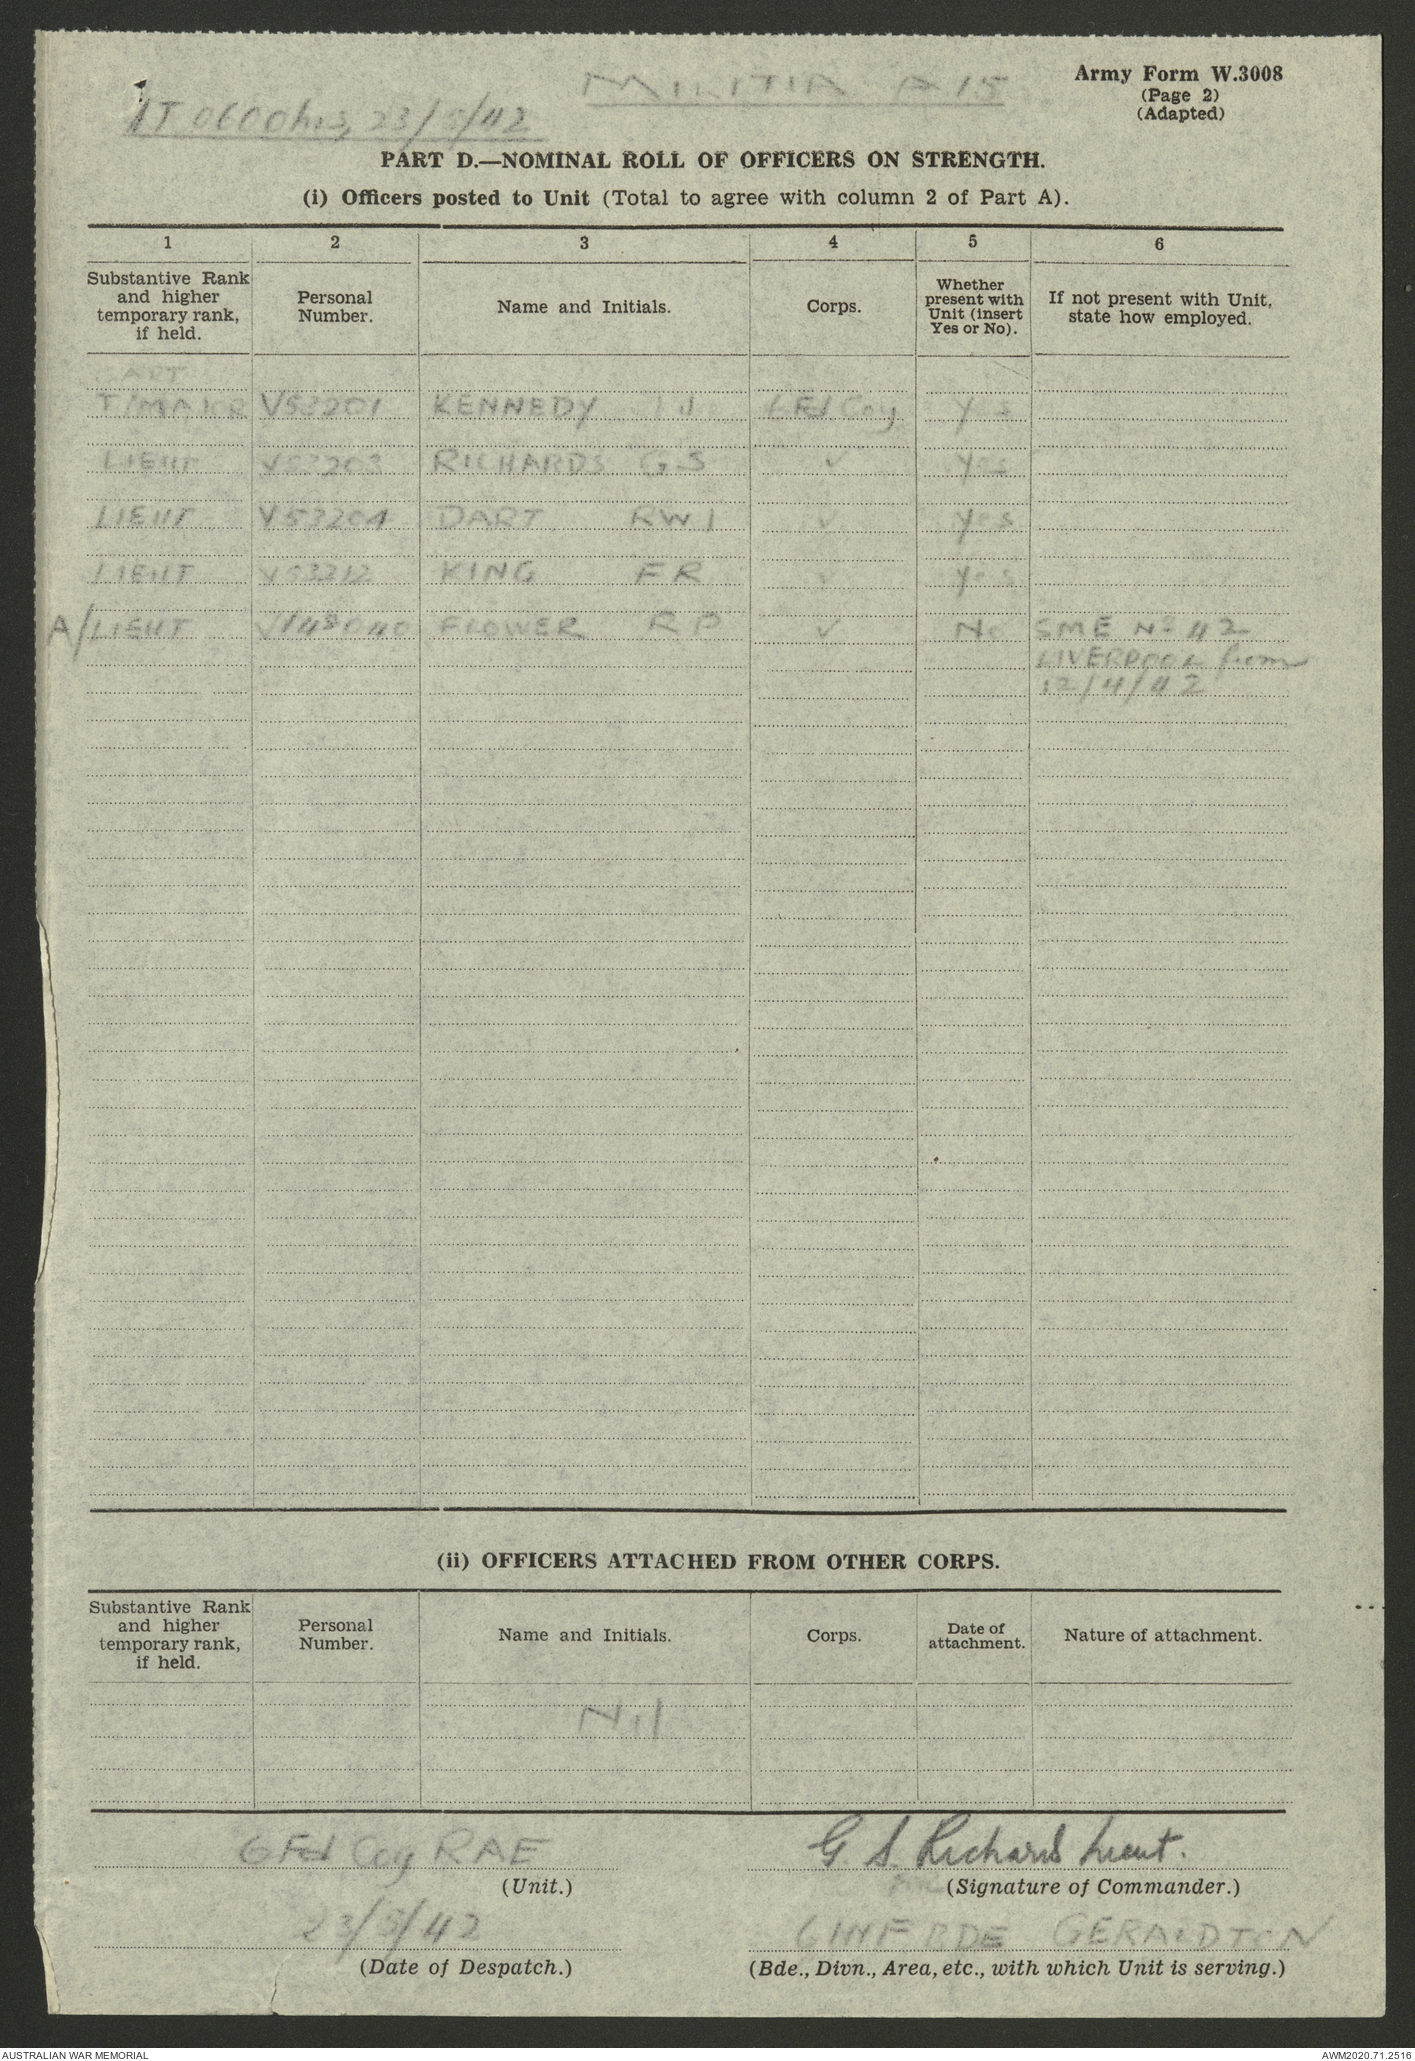 MILITIA A15
Army Form W.3008
(Page 2)
(Adapted)
AT 0600hrs, 23/5/42
PART D.—NOMINAL ROLL OF OFFICERS ON STRENGTH.
(i) Officers posted to Unit (Total to agree with column 2 of Part A).
1 2 3 4 5 6
Substantive Rank and higher temporary rank, if held. Personal Number. Name and Initials. Corps. Whether present with Unit (insert Yes or No). If not present with Unit, state how employed.
CAPT
T/MAJOR V53201 KENNEDY 6 Fd Coy Yes
LIEUT V53203 RICHARDS G S ✓ Yes
LIEUT V53204 DART R W I ✓ Yes
LIEUT V53212 KING F R ✓ Yes
A/LIEUT V148040 FLOWER R P ✓ No SME No 42
LIVERPOOL from
12/4/42
(ii) OFFICERS ATTACHED FROM OTHER CORPS.
Substantive Rank and higher temporary rank, if held. Personal Number. Name and Initials. Corps. Date of attachment. Nature of attachment.
Nil
6 Fd Coy RAE G. S. Richards Lieut.
(Unit.) (Signature of Commander.)
23/5/42 6 INF BDE GERALDTON
(Date of Despatch.) (Bde., Divn., Area, etc., with which Unit is serving.)
AUSTRALIAN WAR MEMORIAL AWM2020.71.2516